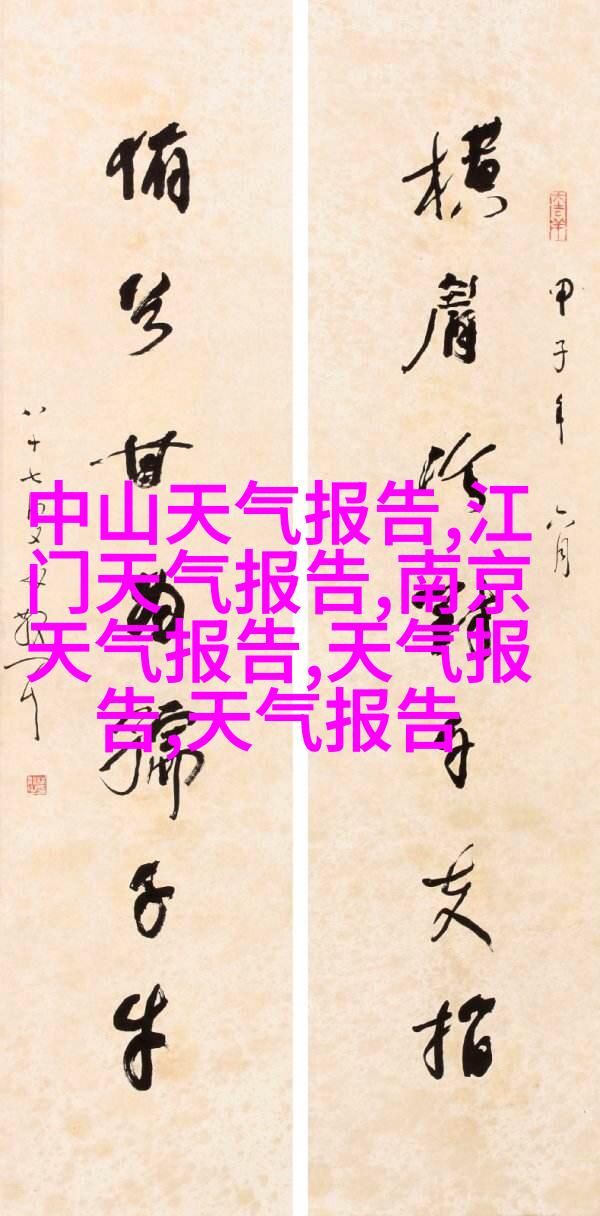 甲子年六月
橫眉冷對千夫指
俯首甘為孺子牛
八十七叟
中山天气报告,江
门天气报告,南京
天气报告,天气报
告,天气报告